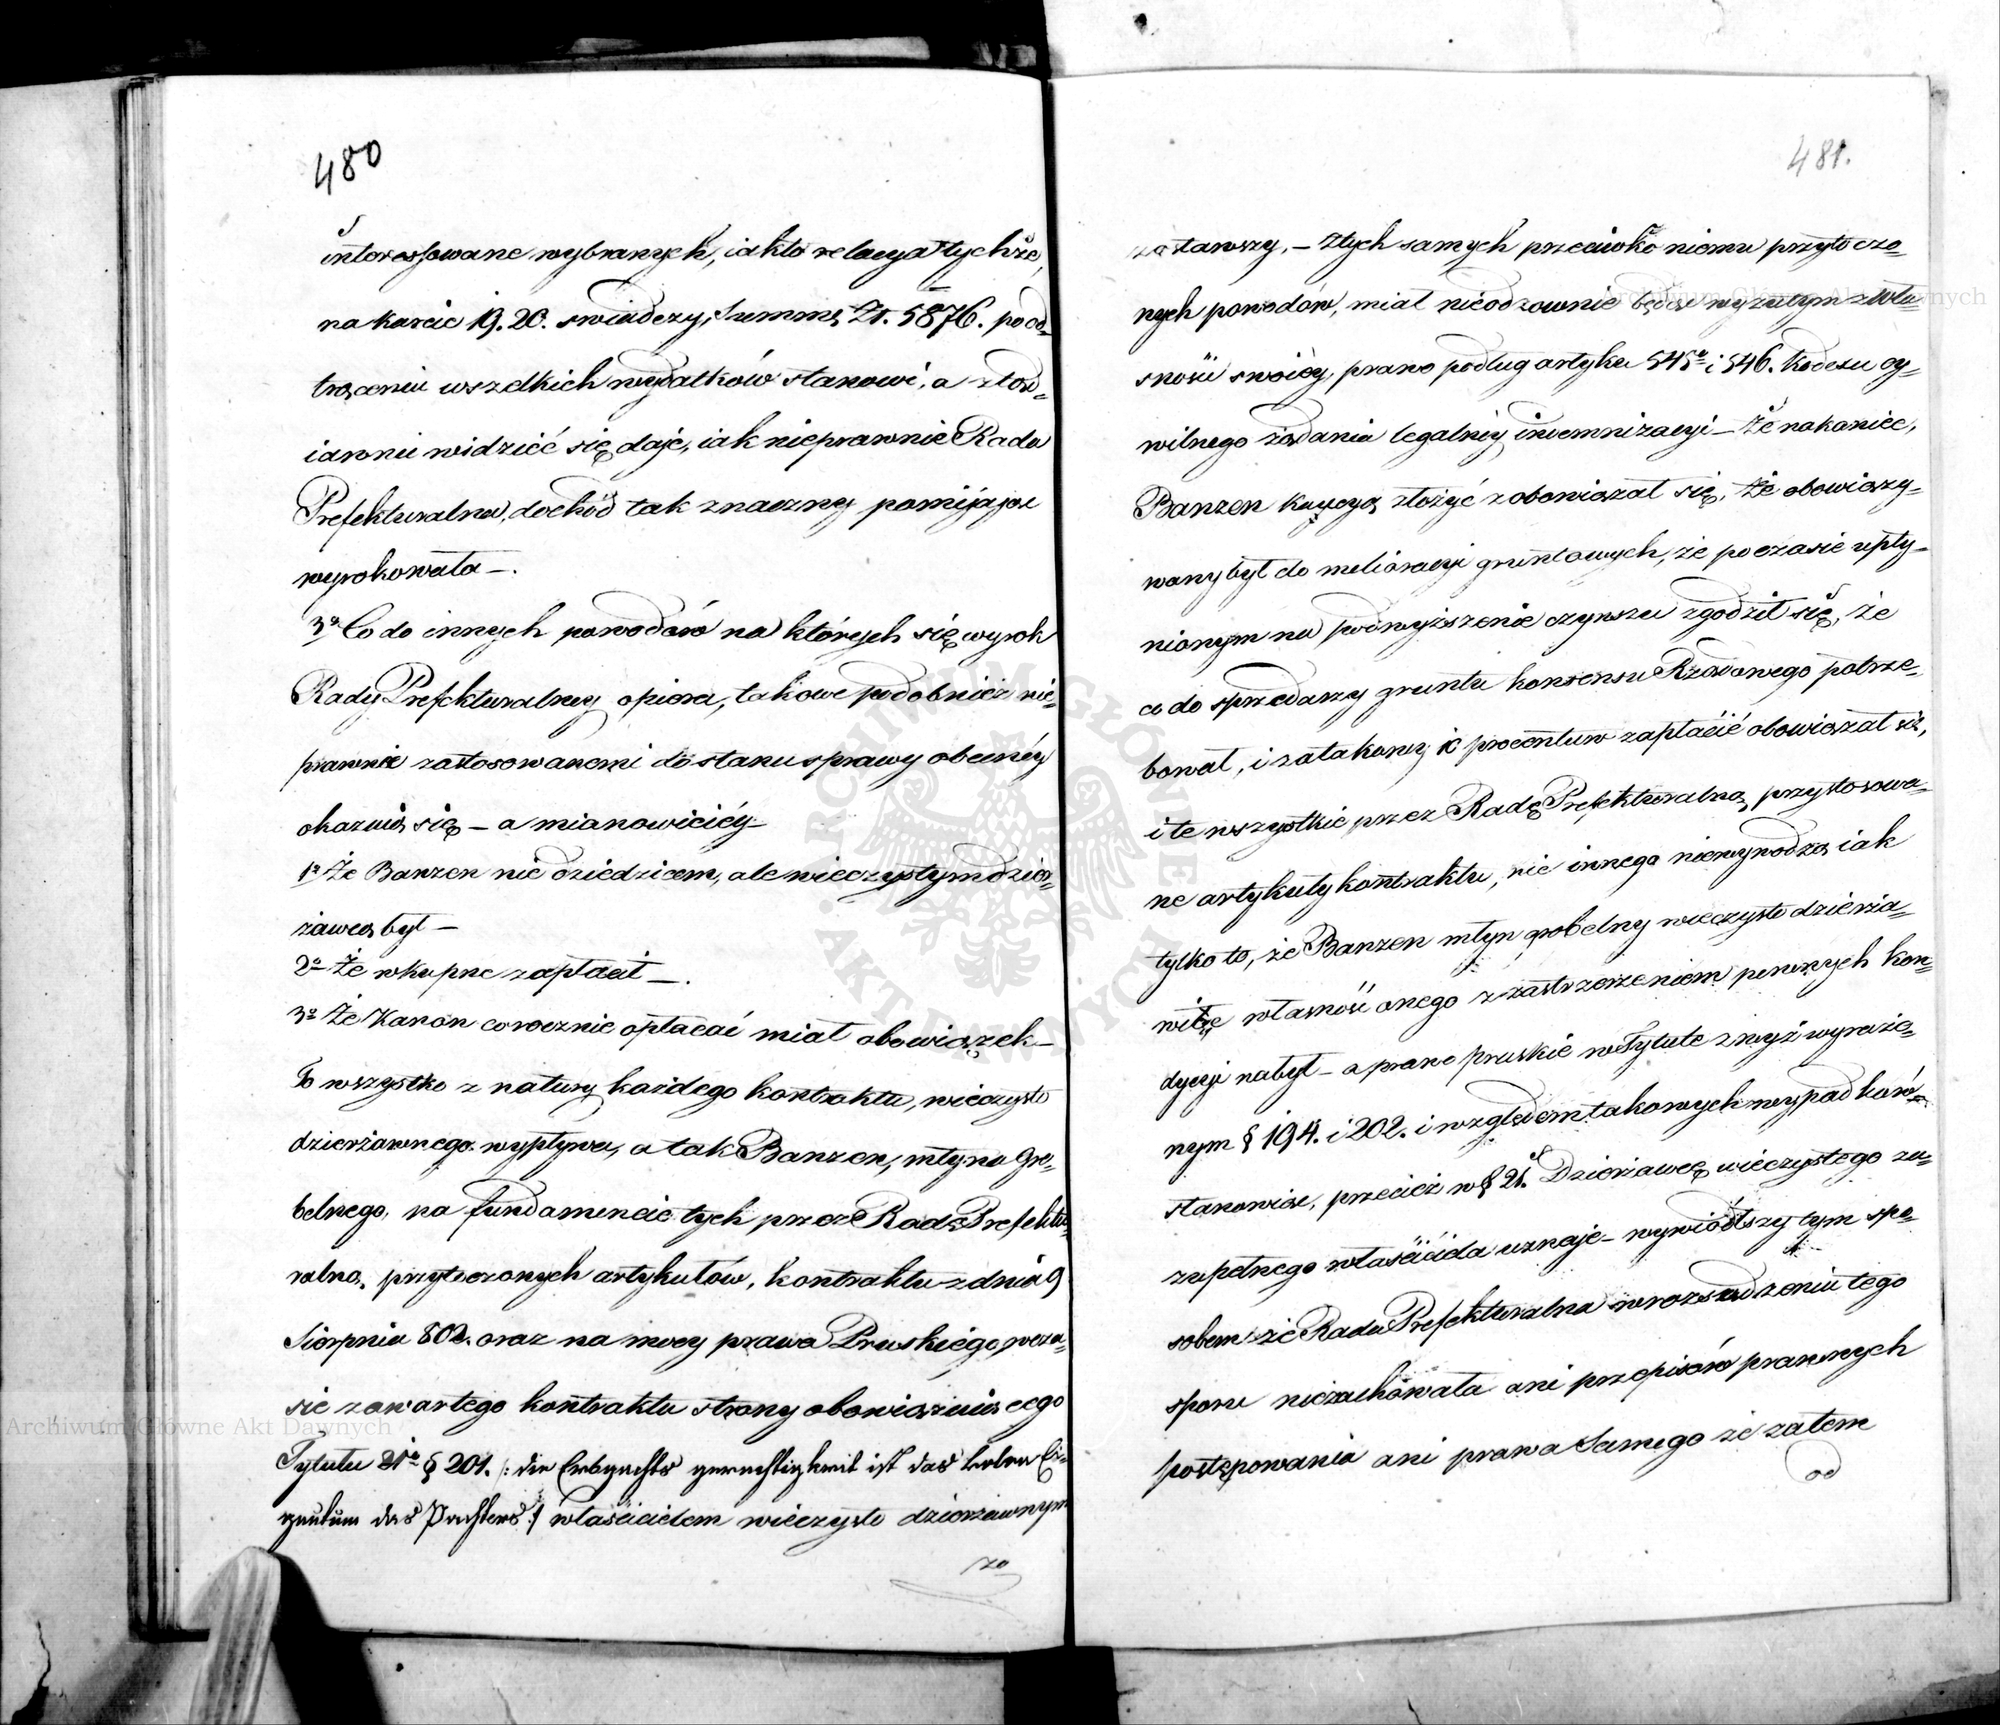 480
interessowane wybranych, iak to relacya tychże,
na karcie 19. 20. swiadczy, Summę Zł. 5876. po od=
trąceniu wszelkich wydatków stanowi, a ztąd=
iawnie widzieć się daje, iak nieprawnie Rada
Prefekturalna, dochód tak znaczny pomijając
wyrokowała —.
3º Co do innych powodów na których się wyrok
Rady Prefekturalney opiera, takowe podobnież nie=
prawnie zastosowanemi do stanu sprawy obecnéy
okazuią się — a mianowiciéy —
1º Że Banzen nie dziedzicem, ale wieczystym dzier=
żawcą był —
2º Że wkupne zapłacił —.
3º Że Kanon corocznie opłacać miał obowiązek —
To wszystko z natury każdego kontraktu, wieczysto
dzierżawnego wypływa, a tak Banzen, młyna Gro=
belnego, na fundamencie tych przez Radę Prefektu=
ralną, przytoczonych artykułów, kontraktu z dnia 9
Sierpnia 802. oraz na mocy prawa Pruskiego, wcza=
sie zawartego kontraktu strony obowiązuiącego
Tytułu 21º § 201. /: die Erbpachts gerechtigkeit ist das wahre Ei=
genthum des Pächters :/ właścicielem wieczysto dzierżawnym
zo
481.
zostawszy, — Ztych samych przeciwko niemu przytoczo=
nych powodów, miał nieodzownie będąc wyzutym z Wła=
sności swoiéy, prawo podług artyku 545º i 546. Kodexu cy=
wilnego żądania legalnéy indemnizacyi — Że nakoniec,
Banzen kaucyą złożyć zobowiązał się, Że obowiązy=
wany był do melioracyi gruntowych, że po czasie upły=
nionym na podwyższenie czynszu zgodził się, że
co do sprzedarzy gruntu konsensu Rządowego potrze=
bował, i za takowy 10 procentum zapłacić obowiązał się,
i te wszystkie przez Radę Prefekturalną przystosowa=
ne artykuły kontraktu, nic innego niewywodzą iak
tylko to, że Banzen młyn grobelny wieczysto dzierża=
wiąc własność onego z zastrzeżeniem pewnych kon=
dycyi nabył — a prawo pruskie w Tytule zwyż wyrażo=
nym § 194. i 202. i względem takowych wypadków
stanowiąc, przecież w § 21. Dzierżawcę wieczystego za
zupełnego właściciela uznaje — wywiódłszy tym spo=
sobem że Rada Prefekturalna w rozsądzeniu tego
sporu niezachowała ani przepisów prawnych
postępowania ani prawa Samego że zatem
od